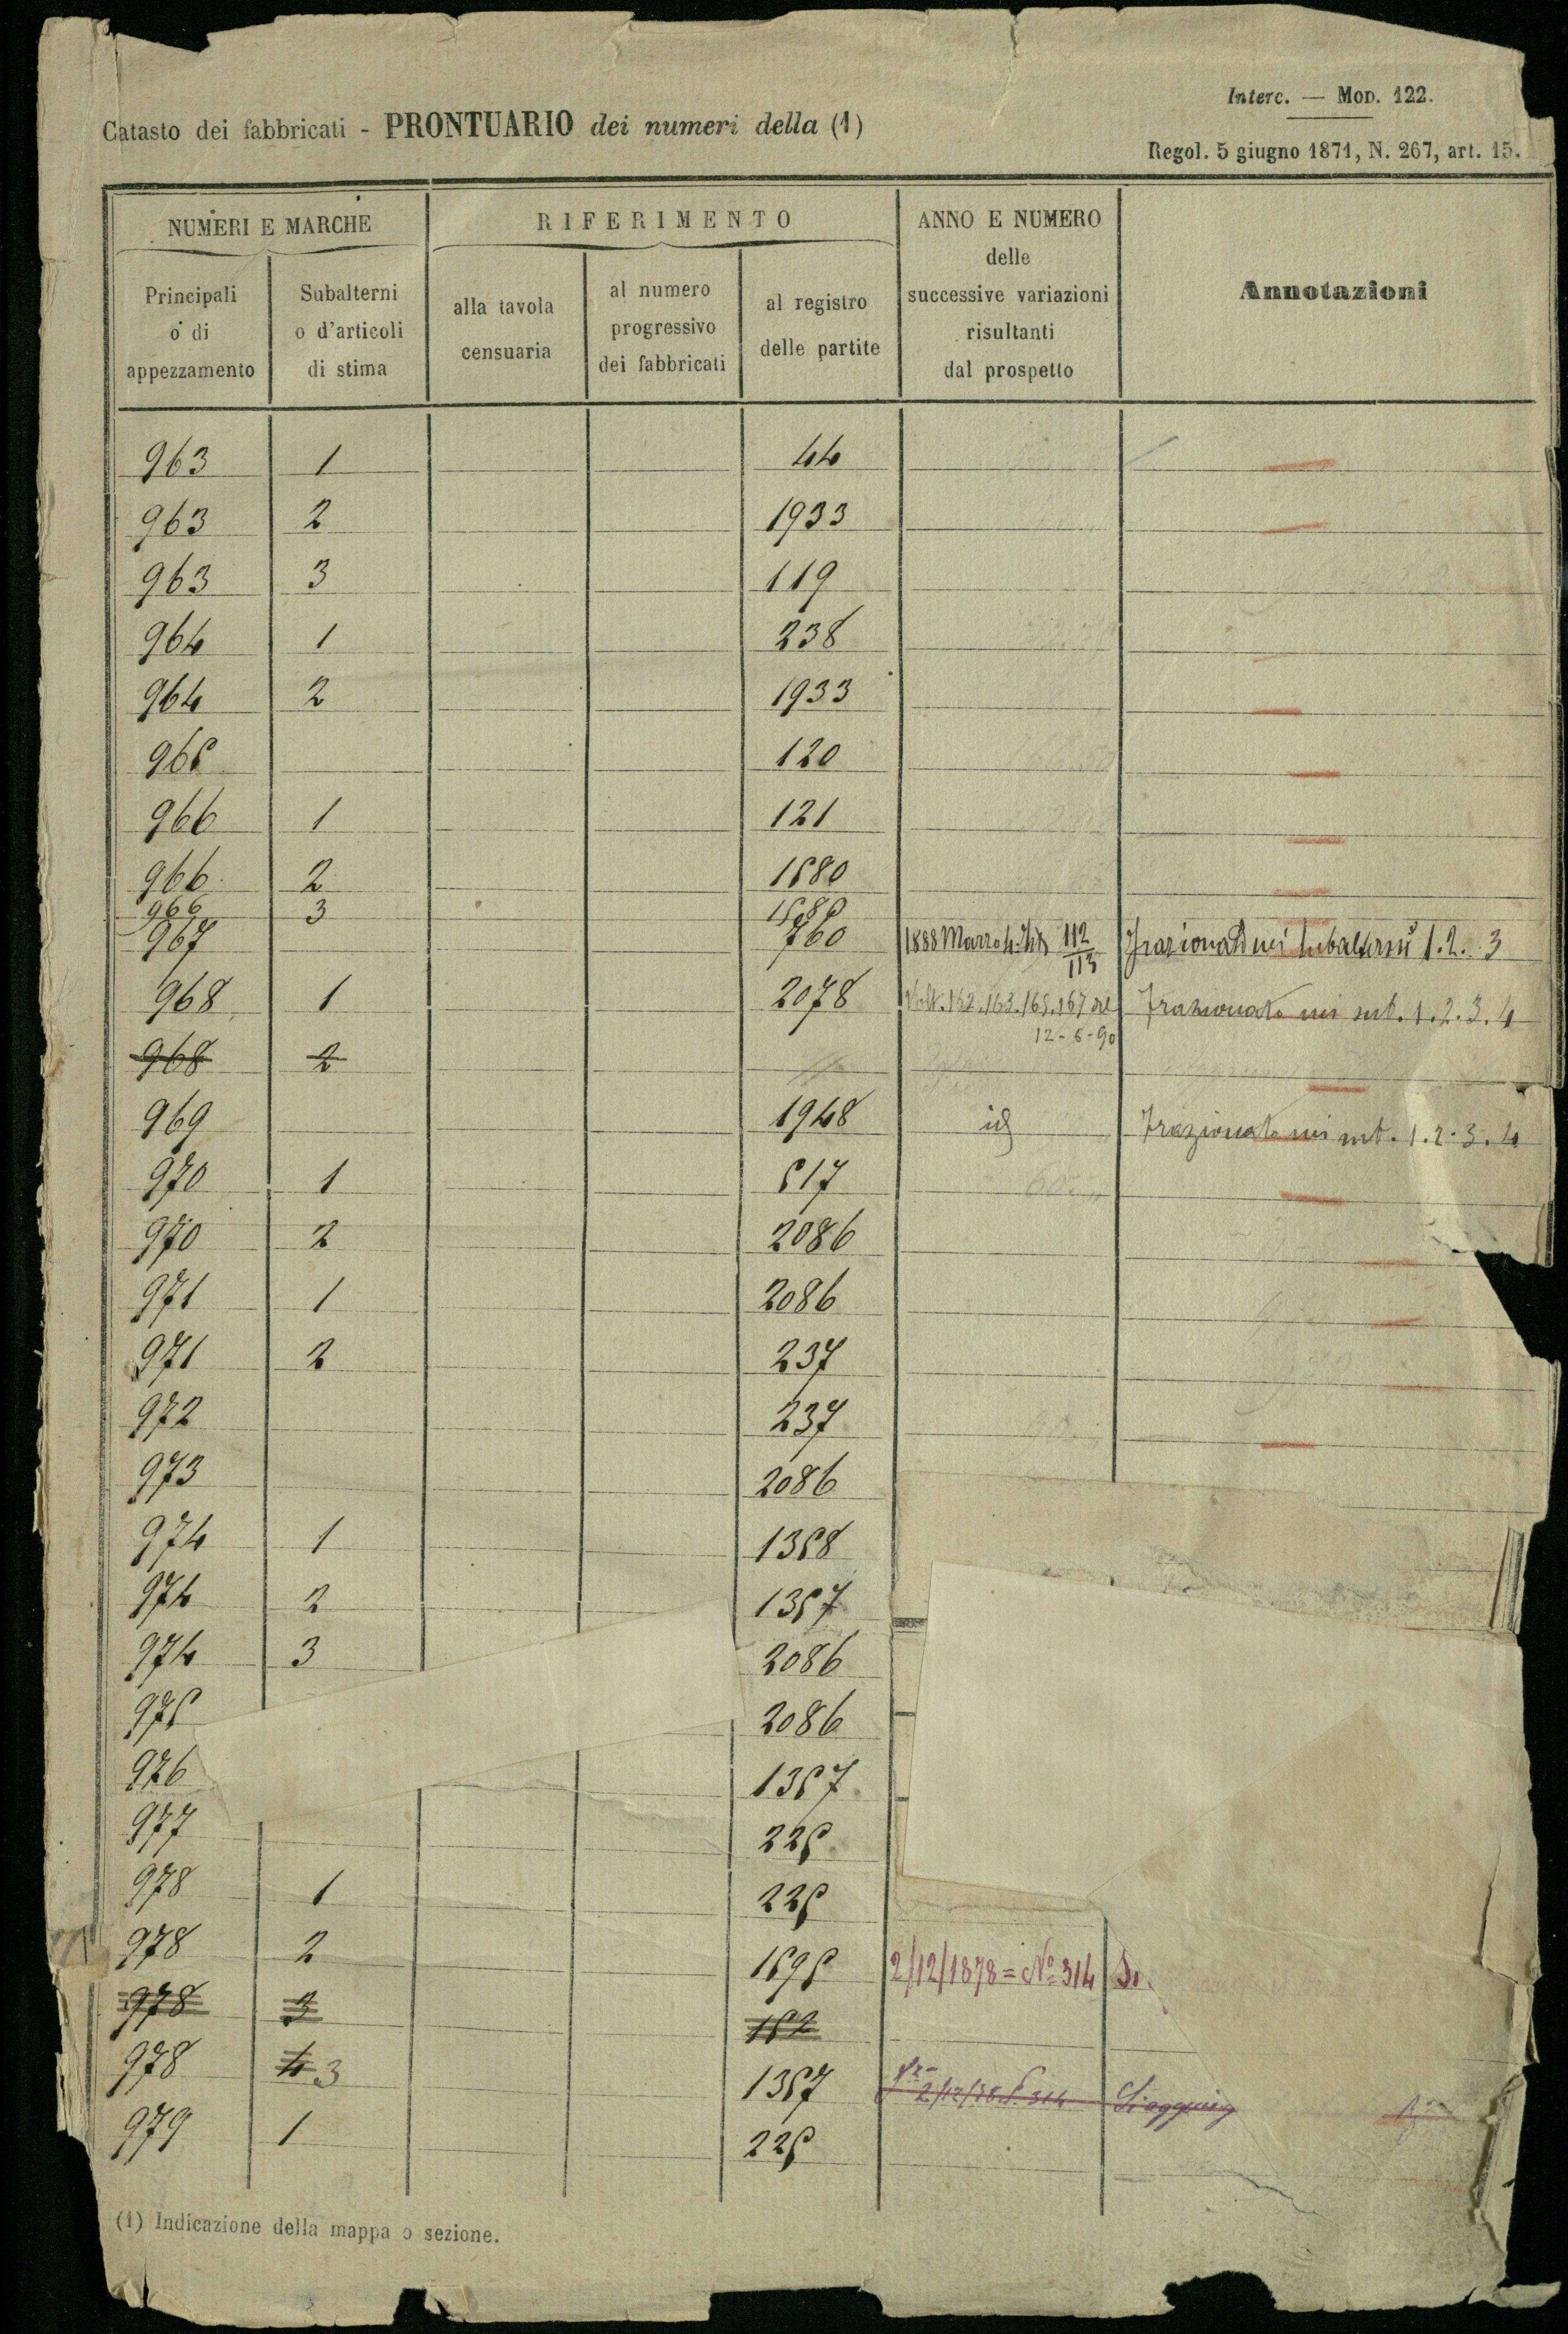 Interc. — Mod. 122.
Catasto dei fabbricati - PRONTUARIO dei numeri della (1)
Regol. 5 giugno 1871, N. 267, art. 15.
NUMERI E MARCHE
RIFERIMENTO
ANNO E NUMERO
delle
successive variazioni
risultanti
dal prospetto
Annotazioni
Principali
o di
appezzamento
Subalterni
o d'articoli
di stima
alla tavola
censuaria
al numero
progressivo
dei fabbricati
al registro
delle partite
963 1 44
963 2 1933
963 3 119
964 1 238
964 2 1933
965 120
966 1 121
966 2 1580
966 3 1580
967 760 1888 Marzo 112 1. 2. 3
113
968 1 2078 Volt. 162.163.165.167 Frazionato nei sub. 1.2.3.4
12-6-90
968 2
969 1948 id Frazionato nei sub. 1.2.3.4
970 1 517
970 2 2086
971 1 2086
971 2 237
972 237
973 2086
974 1 1358
974 2 1357
974 3 2086
975 2086
976 1357
977 225
978 1 225
978 2 1595 2/12/1878 = No 314
978 3 152
978 4 3 1357
979 1 225
(1) Indicazione della mappa o sezione.